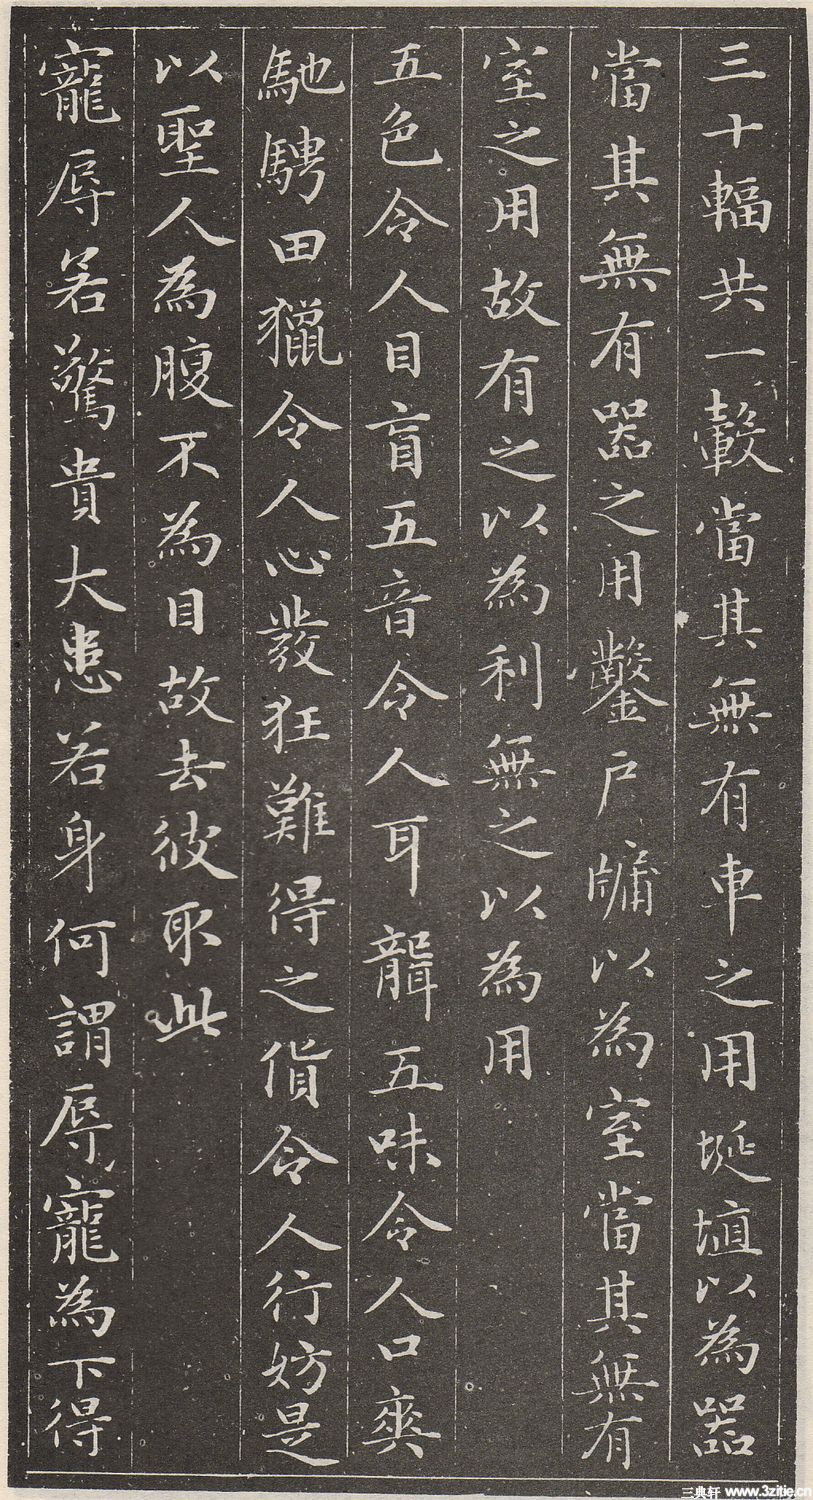 三十輻共一轂當其無有車之用埏埴以為器
當其無有器之用鑿戶牖以為室當其無有
室之用故有之以為利無之以為用
五色令人目盲五音令人耳聾五味令人口爽
馳騁田獵令人心發狂難得之貨令人行妨是
以聖人為腹不為目故去彼取此
寵辱若驚貴大患若身何謂辱寵為下得
三典轩 www.3zitie.cn